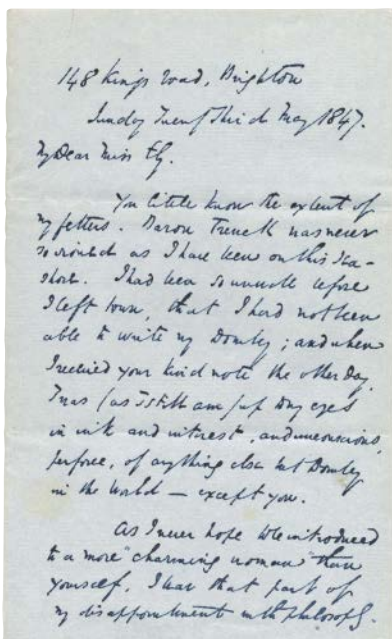 148 Kings Road, Brighton
Sunday Twenty Third May 1847.
My Dear Miss Ely.
You little know the extent of
my fetters. Baron Trenck was never
so ironed as I have been on this sea-
shore. I had been so unwell before
I left town, that I had not been
able to write my Dombey; and when
I received your kind note the other day,
I was (as I still am) up to my eyes
in ink and interest, and unconscious,
perforce, of anything else but Dombey
in the world — except you.
As I never hope to be introduced
to a more "charming woman" than
yourself, I bear that part of
my disappointment with philosophy.